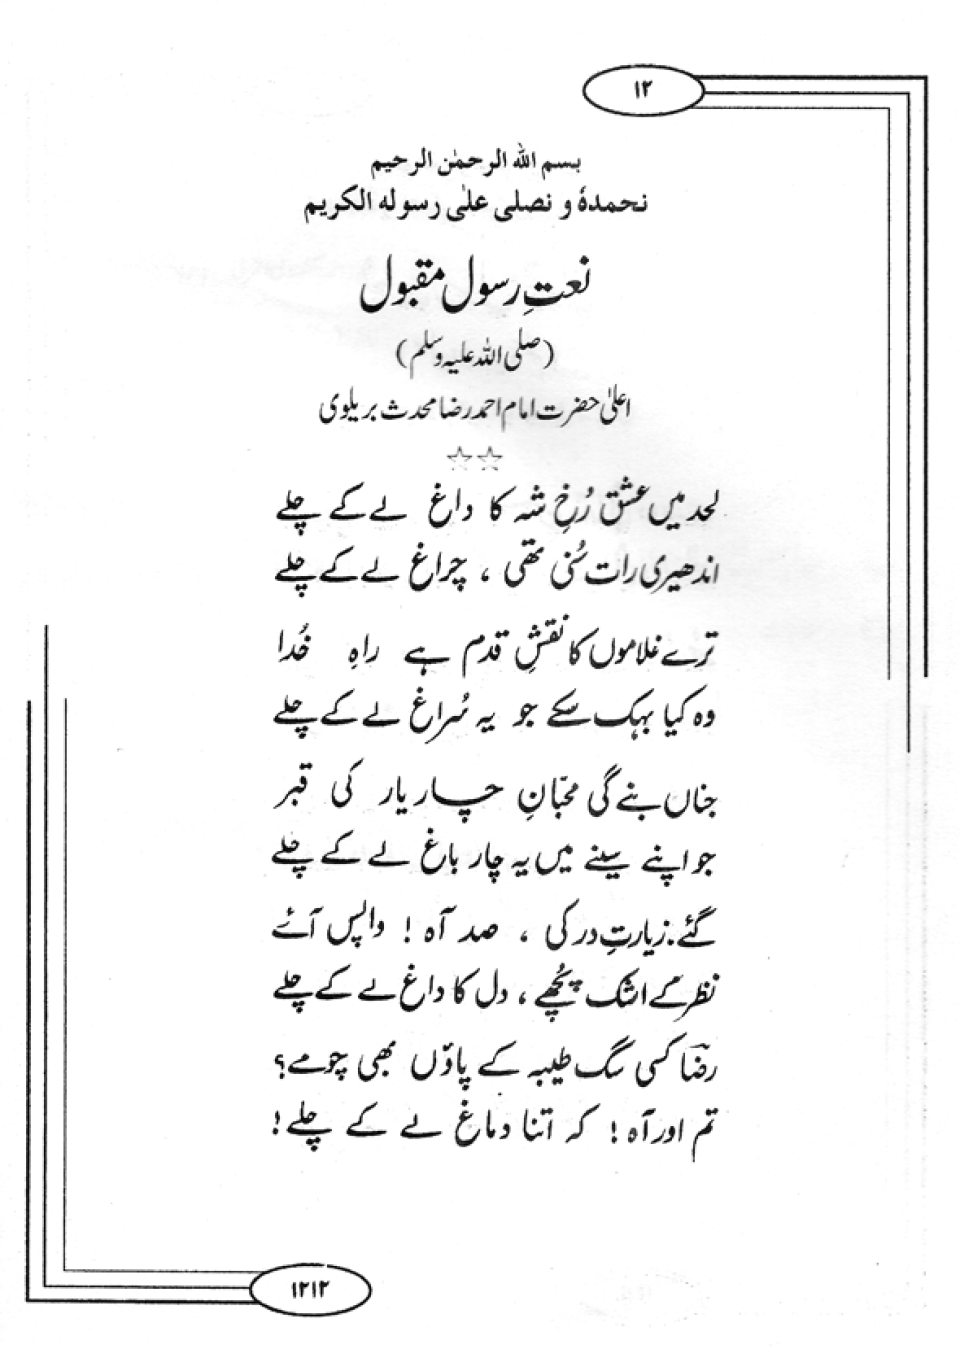 ۱۲
بسم الله الرحمٰن الرحيم
نحمدهٗ و نصلی علیٰ رسوله الکریم
نعتِ رسول مقبول
(صلی اللہ علیہ وسلم)
اعلیٰ حضرت امام احمد رضا محدث بریلوی
☆☆
لحد میں عشق رُخِ شہ کا داغ لے کے چلے
اندھیری رات سُنی تھی ، چراغ لے کے چلے
ترے غلاموں کا نقشِ قدم ہے راہِ خُدا
وہ کیا بہک سکے جو یہ سُراغ لے کے چلے
جناں بنے گی محبّانِ چار یار کی قبر
جو اپنے سینے میں یہ چار باغ لے کے چلے
گئے۔ زیارتِ در کی ، صد آہ ! واپس آئے
نظر کے اشک پُچھے ، دل کا داغ لے کے چلے
رضاؔ کسی سگ طیبہ کے پاؤں بھی چومے؟
تم اور آہ ! کہ اتنا دماغ لے کے چلے !
۱۲۱۲